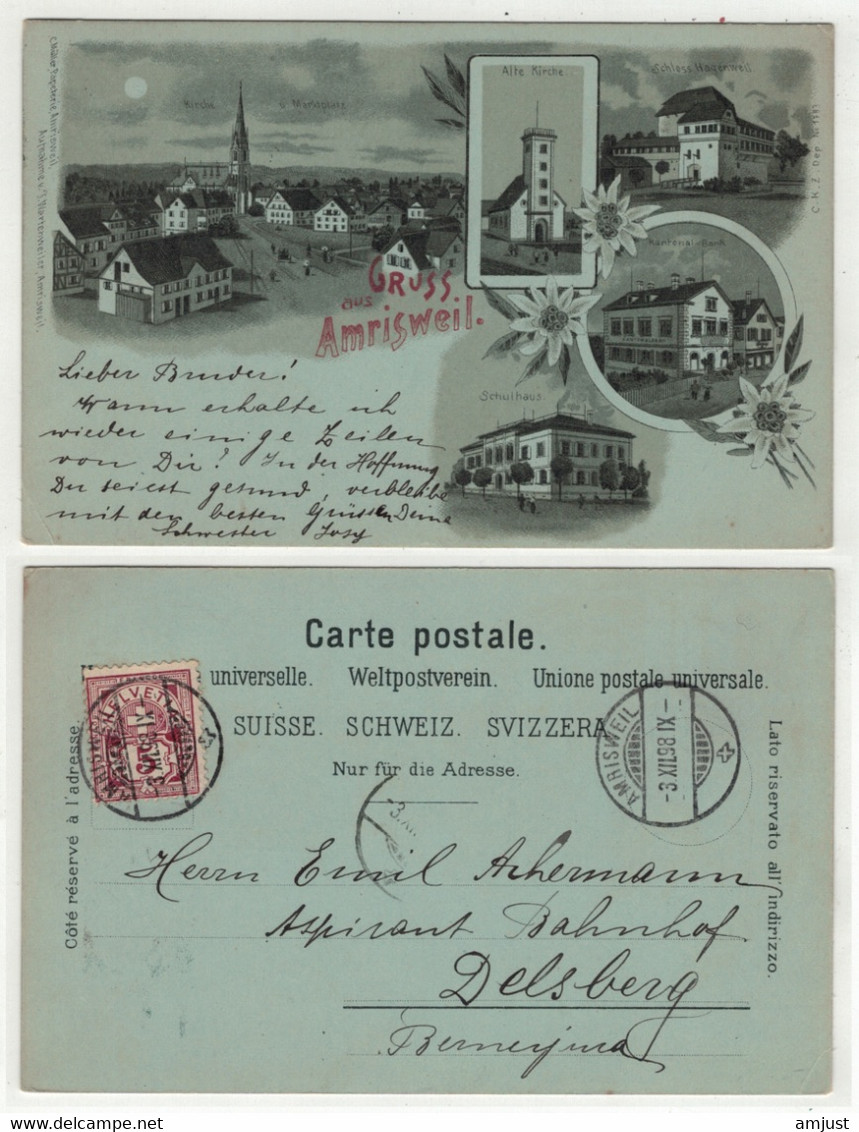 C. Müller Papeterie, Amrisweil.
Kirche u. Marktplatz
Alte Kirche
Schloss Hagenweil
C. K. Z. Dep.
Kantonal-Bank
Gruss
aus
Amrisweil.
Schulhaus
Lieber Bruder!
Wann erhalte ich
wieder einige Zeilen
von Dir? In der Hoffnung
Du seiest gesund, verbleibe
mit den besten Grüssen Deine
Schwester Josy
Carte postale.
universelle. Weltpostverein. Unione postale universale.
SUISSE. SCHWEIZ. SVIZZERA
Nur für die Adresse.
Côté réservé à l'adresse.
Lato riservato all' indirizzo.
HELVETIA
AMRISWEIL
Herrn Emil Achermann
Aspirant Bahnhof
Delsberg
Bernerjura
amjust